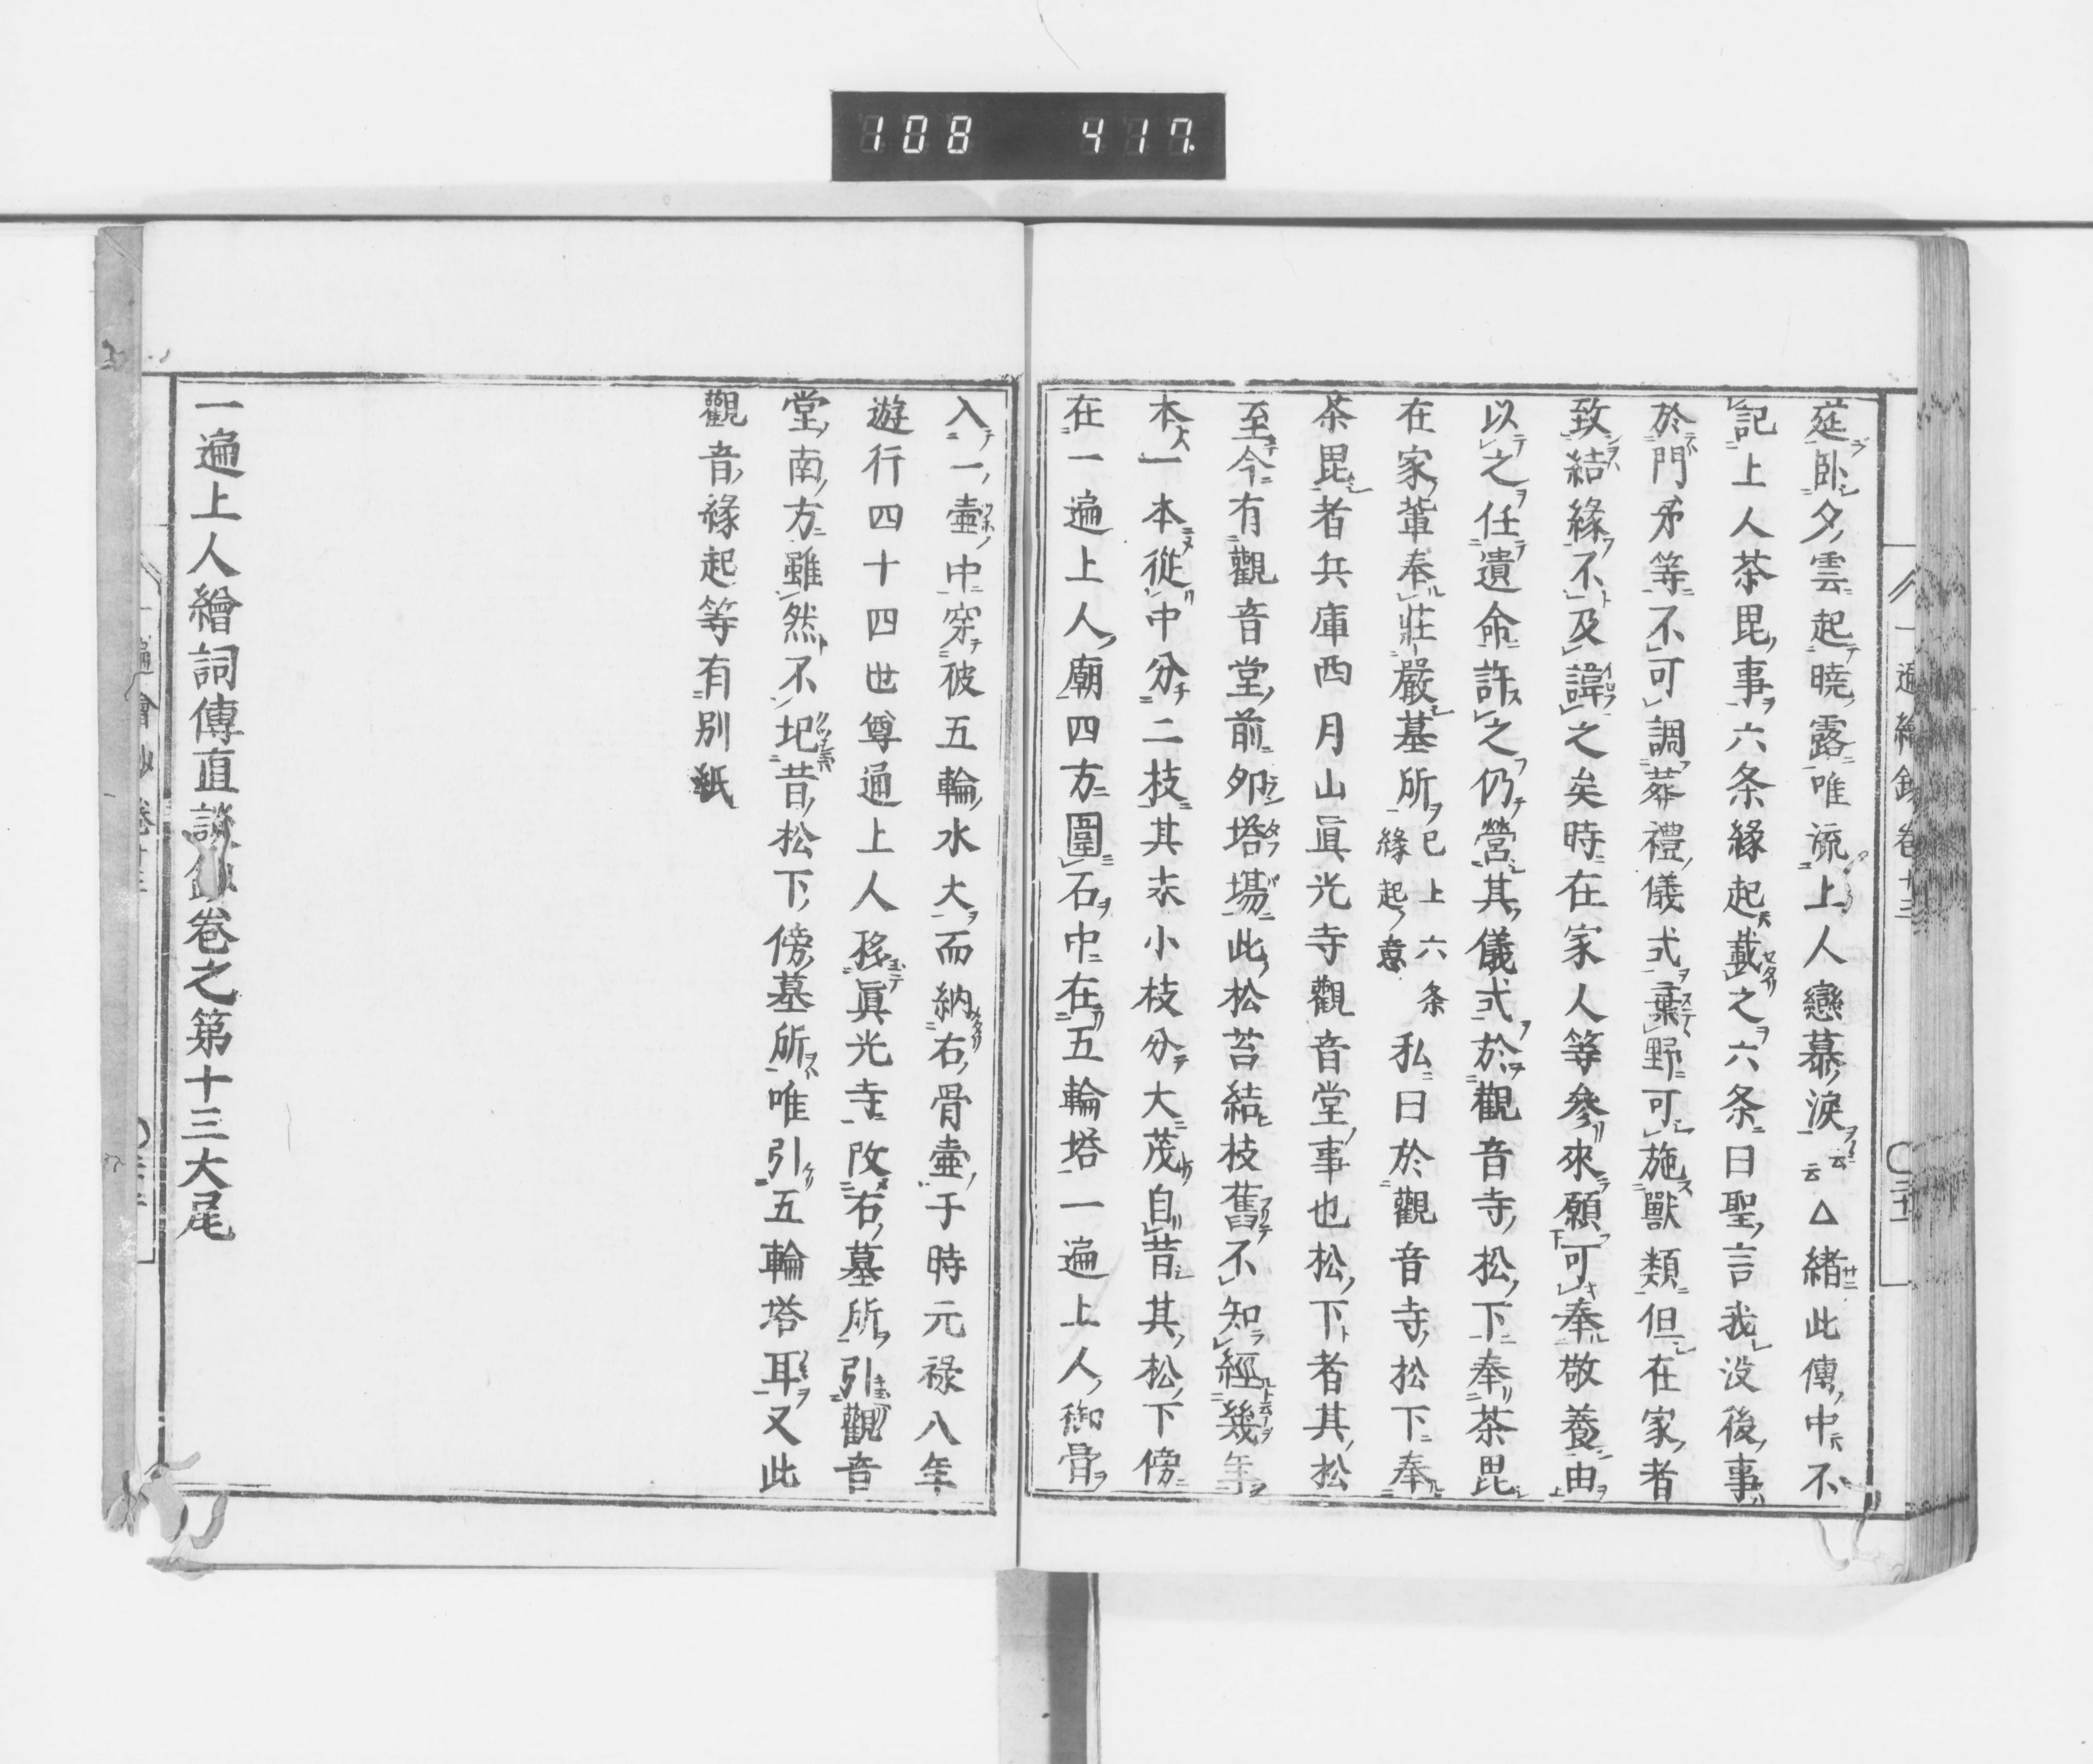 108 417
莚臥夕雲起曉露唯流上人戀慕淚云云△緒此傳中不
記上人茶毘事六条緣起載之六条曰聖言我没後事
於門弟等不可調葬禮儀式棄野可施獸類但在家者
致結緣不及諱之矣時在家人等參來願可奉敬養由
以之任遺命許之仍營其儀式於觀音寺松下奉茶毘
在家葷奉莊嚴墓所已上六条緣起意私曰於觀音寺松下奉
茶毘者兵庫西月山眞光寺觀音堂事也松下者其松
至今有觀音堂前夘塔場此松苔結枝舊不知經幾年
本一本從中分二枝其末小枝分大茂自昔其松下傍
在一遍上人廟四方圍石中在五輪塔一遍上人御骨
入一壷中穿彼五輪水大而納右骨壷于時元禄八年
遊行四十四世尊通上人移眞光寺改右墓所引觀音
堂南方雖然不圯昔松下傍墓所唯引五輪塔耳又此
觀音緣起等有別紙
一遍上人繪詞傳直談鈔卷之第十三大尾